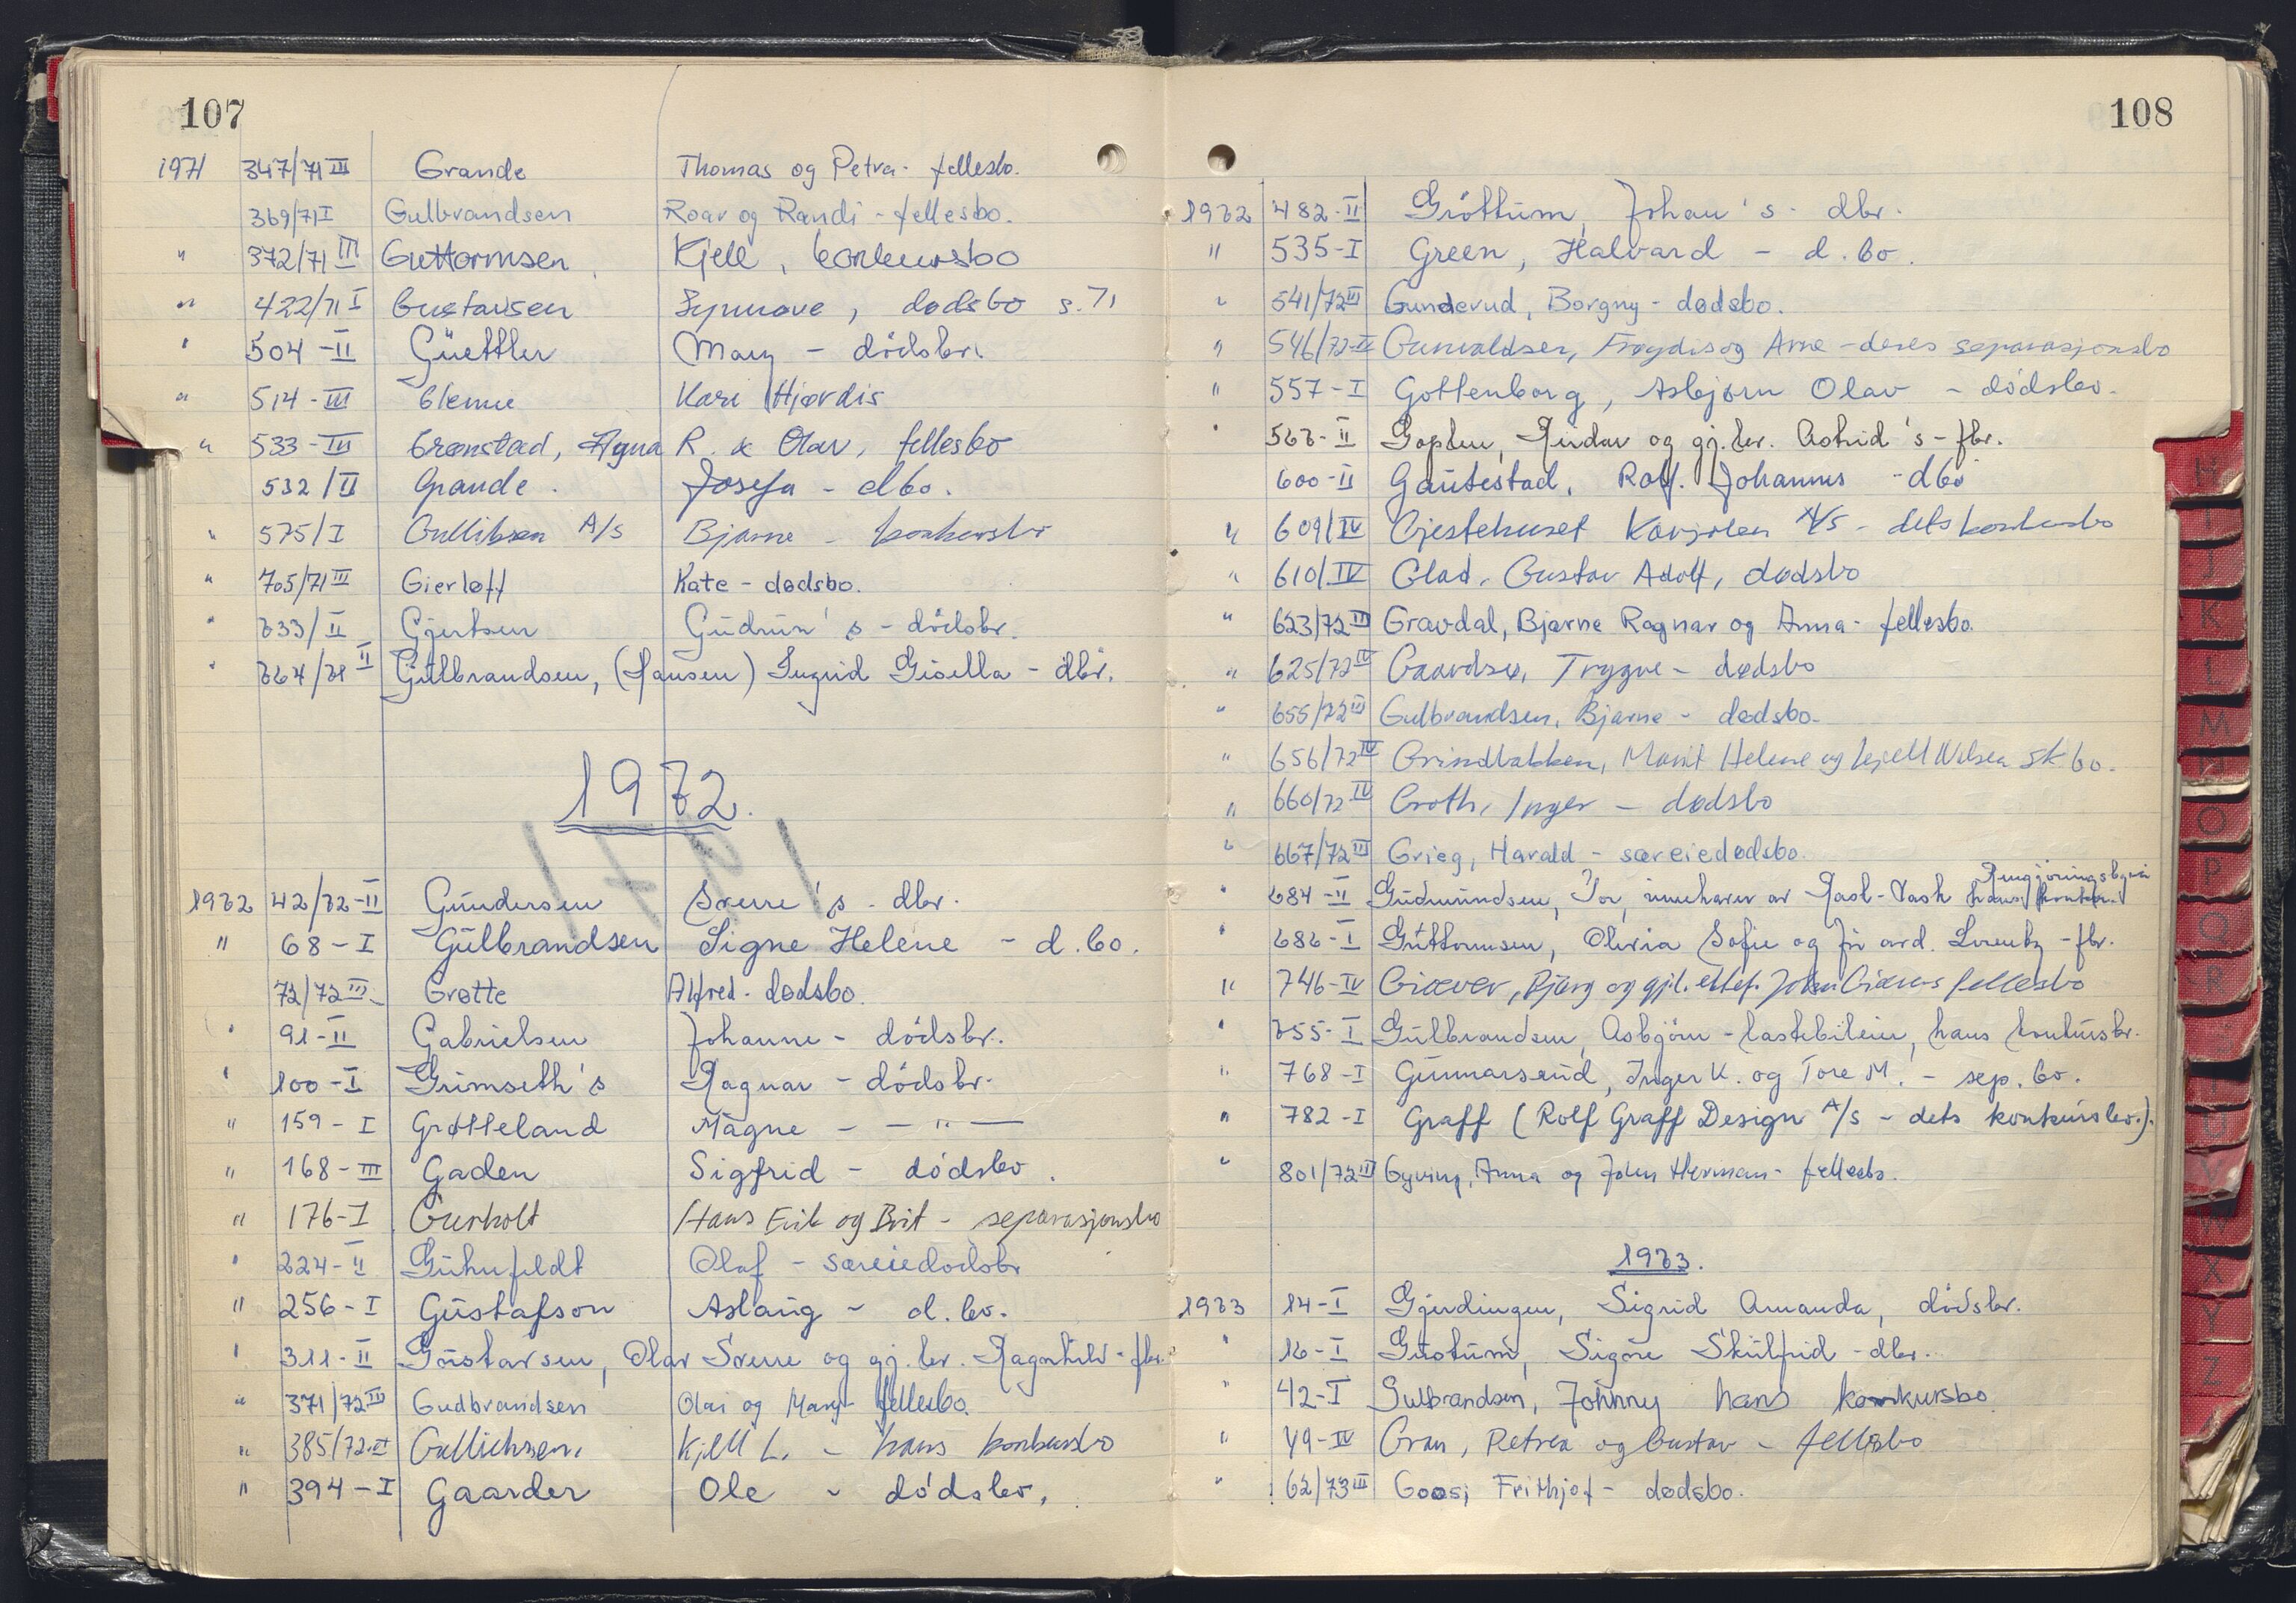 107
1971 347/71 III Grande Thomas og Petra - fellesbo.
369/71 I Gulbrandsen Roar og Randi - fellesbo.
" 372/71 III Guttormsen, Kjell, konkursbo
" 422/71 I Gustavsen Synnøve, dødsbo s. 71
" 504-II Güettler Mary - dödsbo.
" 514-III Glenne Kari Hjørdis
" 533-III Grønstad, Agna R. & Olav, fellesbo
532/II Grande. Josefa - dbo.
" 575/I Gullibsen A/S Bjarne - konkursbo
" 705/71 III Gierløff Kate - dødsbo.
" 733/II Gjertsen Gudrun's - dödsbo.
" 764/71 II Gulbrandsen, (Hansen) Ingrid Gisella - dbo.
1972.
1971
1972 42/72-II Gundersen Sverre's - dbo.
" 68-I Gulbrandsen Signe Helene - d.bo.
72/72 III- Grøtte Alfred - dødsbo.
" 91-II Gabrielsen Johanne - dödsbo.
" 100-I Grimseth's Ragnar - dödsbo.
" 159-I Grøtteland Magne - - " -
" 168-III Gaden Sigfrid - dödsbo.
" 176-I Gurholt Hans Erik og Brit - separasjonsbo
" 224-II Guhnfeldt Olaf - særeiedødsbo
" 256-I Gustafson Aslaug - d.bo.
" 311-II Gustavsen, Olav Sverre og gj.lev. Ragnhild - fbo.
" 371/72 III Gudbrandsen Olai og Mary - fellesbo.
" 385/72-II Gullichsen, Kjell L. - hans konkursbo
" 394-I Gaarder Ole - dödsbo.
108
1972 482-II Gröttum, Johan's - dbo.
" 535-I Green, Halvard - d.bo.
" 541/72 III Gunderud, Borgny - dødsbo.
" 546/72-IV Gunvaldsen, Frøydis og Arne - deres separasjonsbo
" 557-I Gottenborg, Asbjørn Olav - dödsbo.
" 567-II Goplen, Reidar og gj.lev. Astrid's - fbo.
600-II Gautestad, Rolf Johannes - dbo
" 609/IV Gjestehuset A/S - dets konkursbo
" 610/IV Glad, Gustav Adolf, dødsbo
" 623/72 III Gravdal, Bjarne Ragnar og Anna - fellesbo.
" 625/72 IV Gaardsø, Trygve - dødsbo
" 655/72 III Gulbrandsen, Bjarne - dødsbo.
" 656/72 IV Grindbakken, Marit Helene og Kjell Nilsen sk bo.
" 660/72 IV Groth, Inger - dødsbo
" 667/72 III Grieg, Harald - særeiedødsbo.
" 684-II Gudmundsen, Tor, innehaver av Rasl-Vask Rengjøringsbyrå hans konkbo.
" 686-I Guttormsen, Olivia Sofie og før avd. Lorentz - fbo.
" 746-IV Giæver, Bjørg og gjl. ektef. John Giævers fellesbo
" 755-I Gulbrandsen, Asbjörn - lastebileier, hans konkursbo.
" 768-I Gunnarsrud, Inger K. og Tore M. - sep. bo.
" 782-I Graff (Rolf Graff Design A/S - dets konkursbo.).
" 801/72 III Gyving, Anna og John Herman - fellesbo.
1973.
1973 14-I Gjerdingen, Sigrid Amanda, dödsbo.
" 16-I Gustum, Signe Skülfrid - dbo.
" 42-I Gulbrandsen, Johnny hans konkursbo
" 49-IV Gran, Petrea og Gustav - fellesbo
" 62/73 III Goos, Frithjof - dødsbo.
H
I
J
K
L
M
N
O
P
Q
R
S
T
U
V
W
X
Y
Z